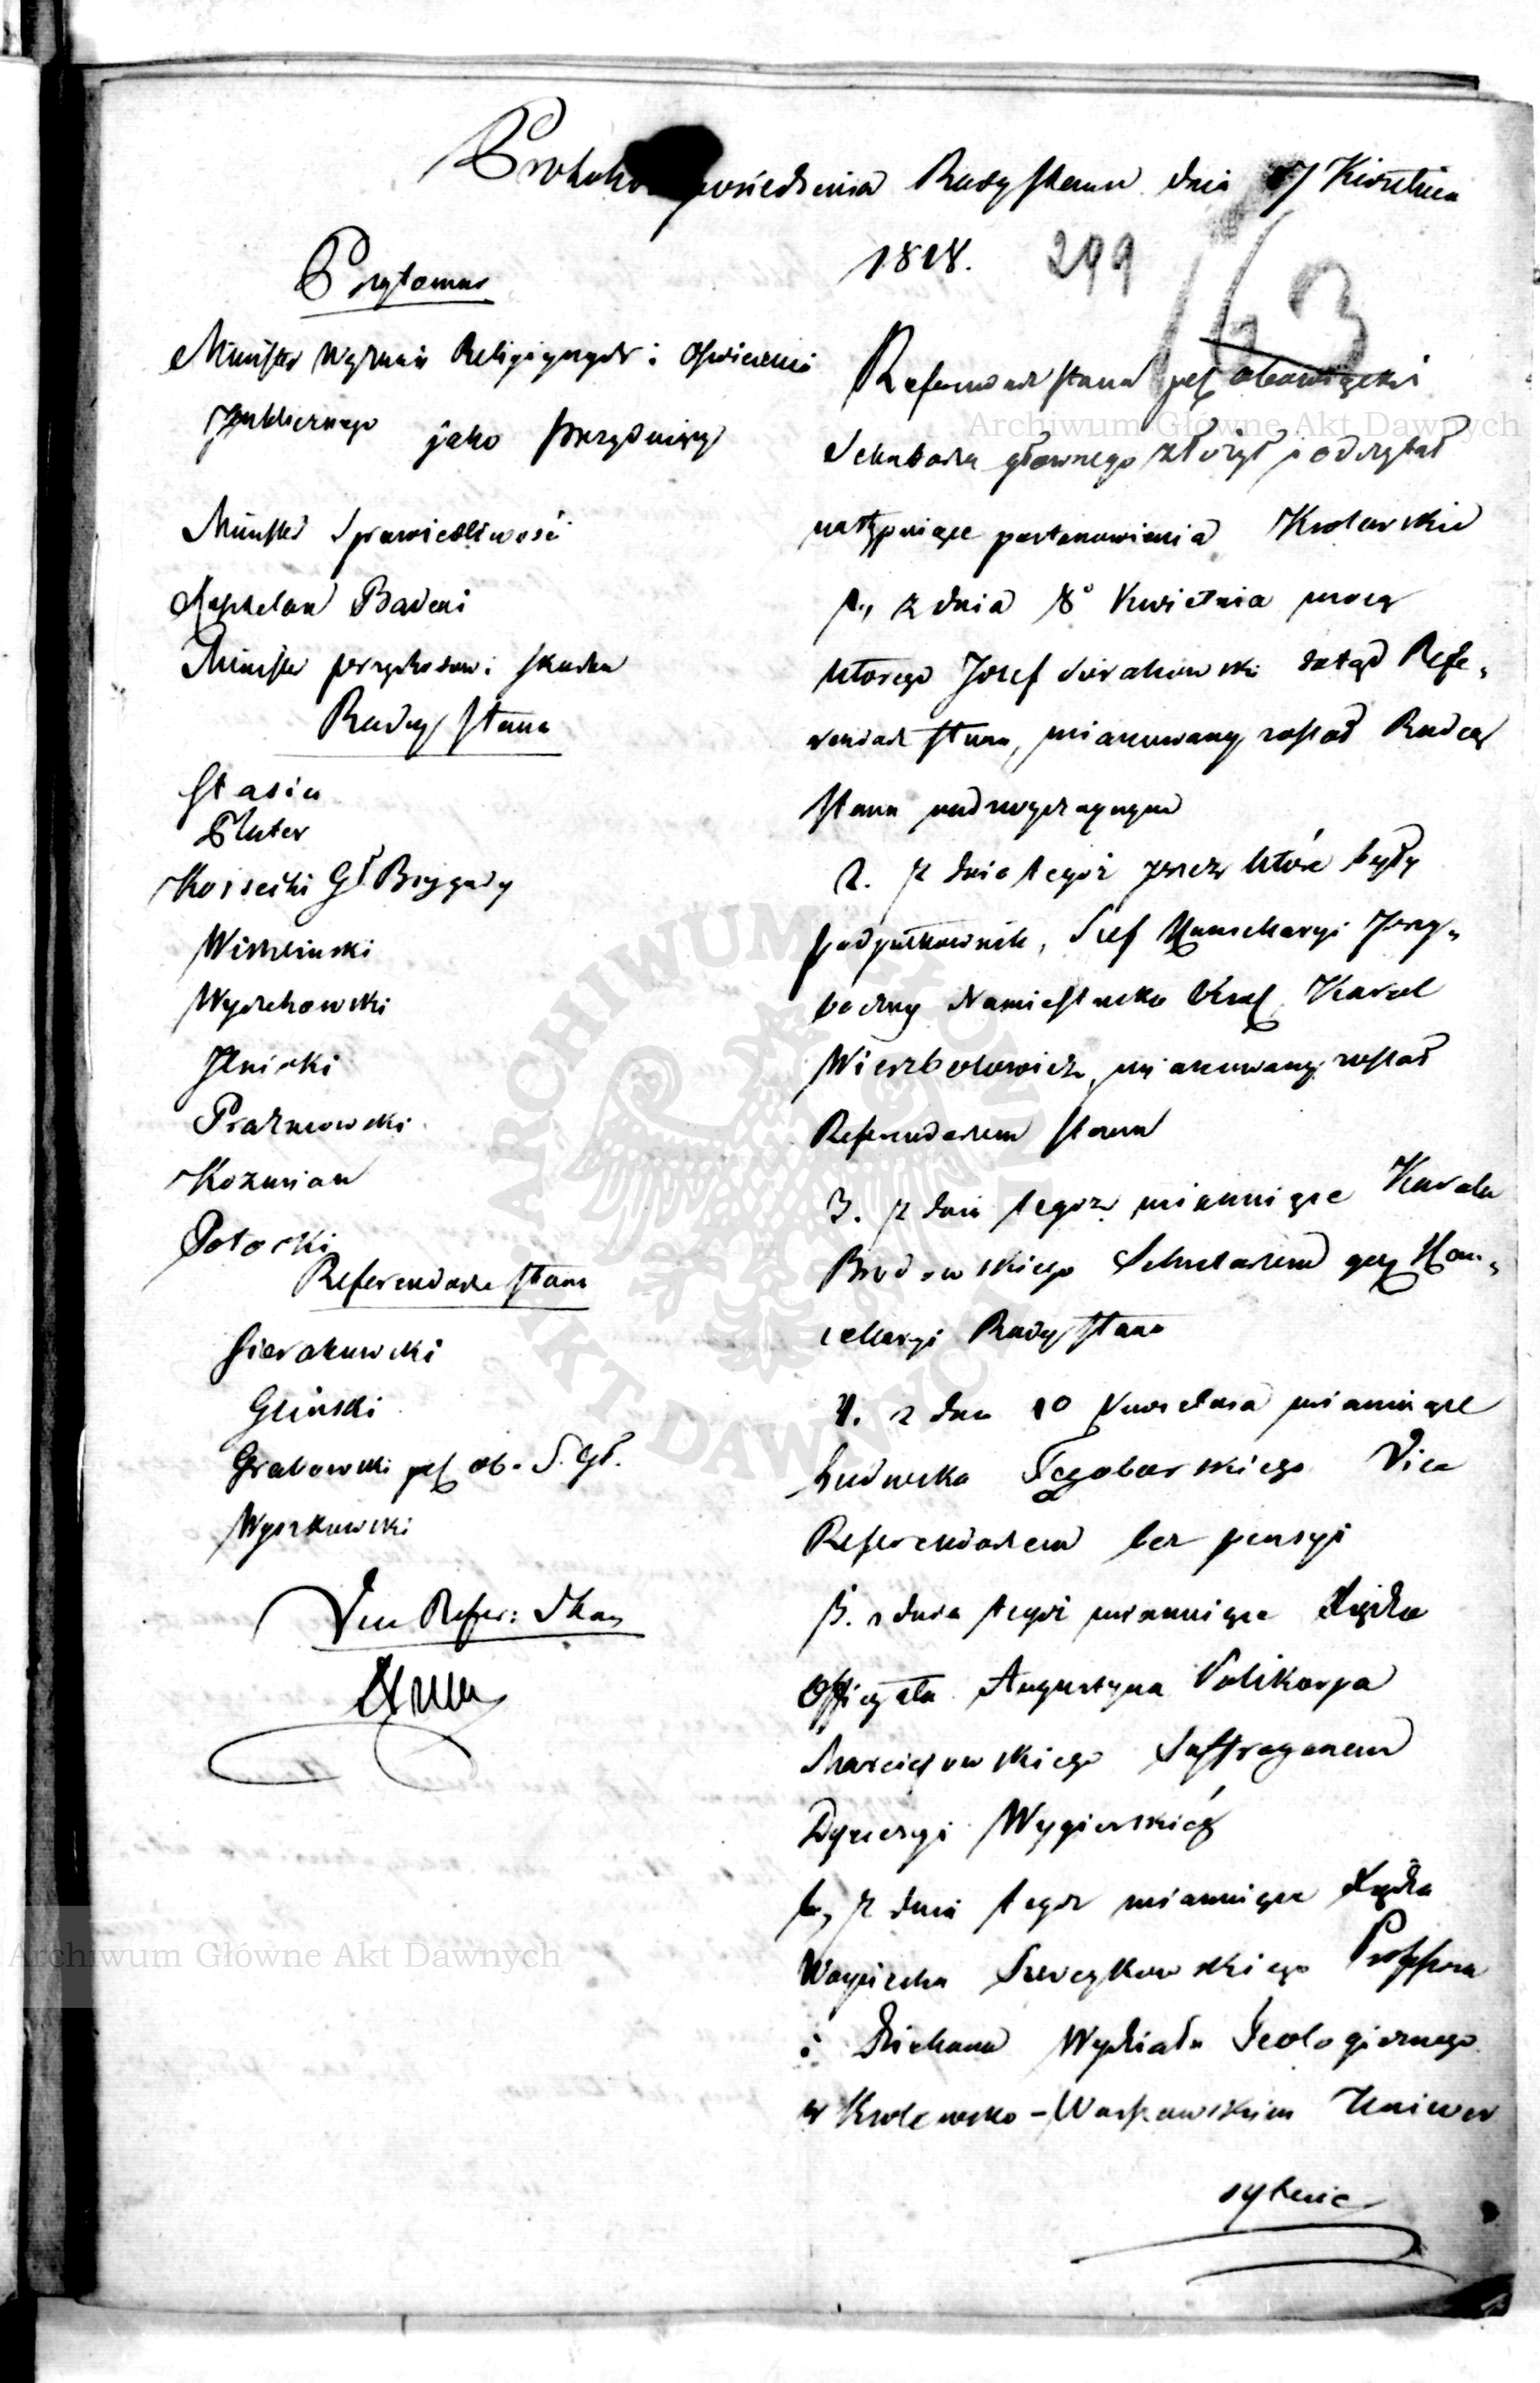 Protokół posiedzenia Rady Stanu dnia 17 Kwietnia
1818. 299
163
Przytomni
Minister Wyznań Religiynych i Oświecenia
Publicznego jako Prezyduiący
Minister Sprawiedliwości
Kasztelan Badeni
Minister przychodow i skarbu
Radcy Stanu
Stasic
Plater
Kossecki Gł Brygady
Wichlinski
Wyczechowski
Ilnicki
Prażmowski
Kozmian
Potocki
Referendarze Stanu
Sierakowski
Gliński
Grabowski peł. ob. S. Gł.
Wyszkowski
Vice Refer: Stanu
Referendarz Stanu peł. obowiązki
Sekretarza głownego złożył i odczytał
następuiące postanowienia Krolewskie
1., z dnia 8 Kwietnia mocą
ktorego Jozef Sierakowski dotąd Refe-
rendarz Stanu, mianowany został Radcą
Stanu nadzwyczaynym
2. z dnia tegoż przez które były
podpułkownik, Szef Kancellaryi Przy-
boczney Namiestnika Krol. Karol
Wierzbołowicz, mianowany został
Referendarzem Stanu
3. z dnia tegoż mianuiące Karola
Brodowskiego Sekretarzem Kan-
cellaryi Rady Stanu
4. z dnia 10 Kwietnia mianuiące
Ludwika Tęgoborskiego Vice
Referendarzem bez pensyi
5. z dnia tegoż mianuiące Xiędza
Officyała Augustyna Polikarpa
Marcieiowskiego Suffraganem
Dyecezyi Wygierskiéy
6., z dnia tegoż mianuiące Xiędza
Woyciecha Szweykowskiego Professora
i Dziekana Wydziału Teologicznego
w Krolewsko-Warszawskim Uniwer
sytecie
Archiwum Główne Akt Dawnych
ARCHIWUM GŁÓWNE
AKT DAWNYCH
Archiwum Główne Akt Dawnych